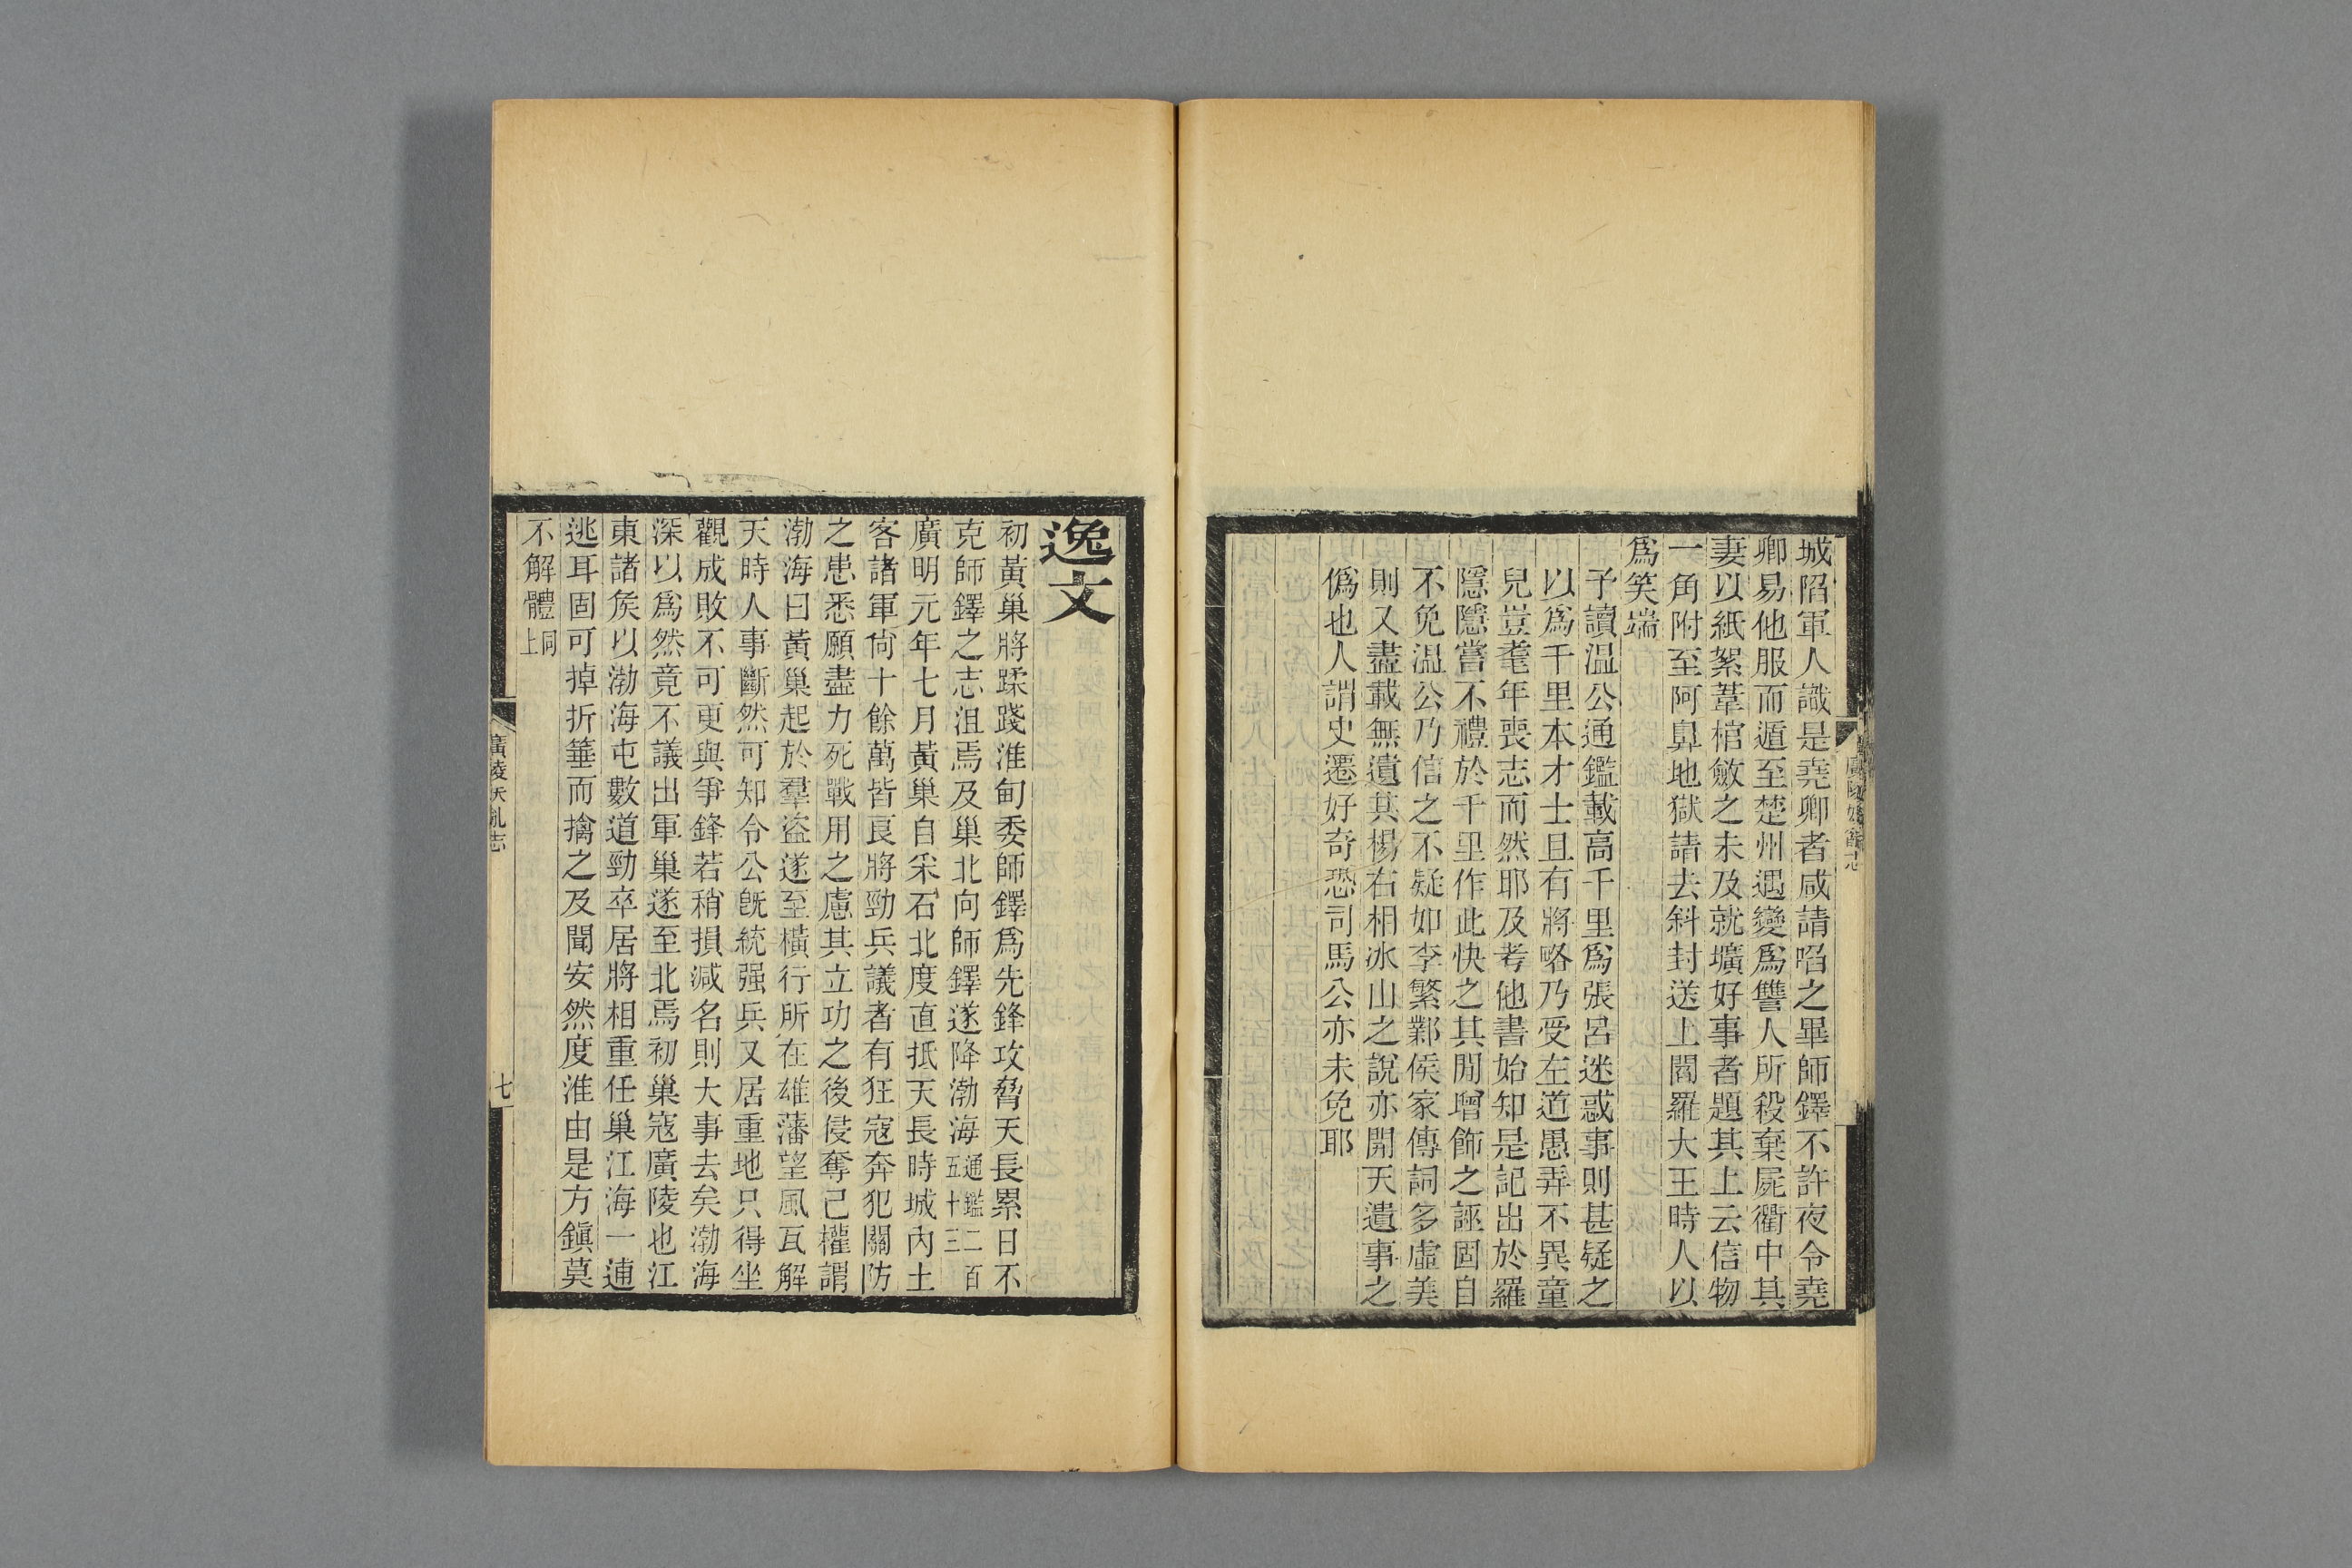 城陷軍人識是堯卿者咸請啗之畢師鐸不許夜令堯
卿易他服而遁至楚州遇變爲讐人所殺棄屍衢中其
妻以紙絮葦棺斂之未及就壙好事者題其上云信物
一角附至阿鼻地獄請去斜封送上閻羅大王時人以
爲笑端
予讀温公通鑑載高千里爲張呂迷惑事則甚疑之
以爲千里本才士且有將略乃受左道愚弄不異童
兒豈耄年喪志而然耶及考他書始知是記出於羅
隱隱嘗不禮於千里作此快之其閒增飾之誣固自
不免温公乃信之不疑如李繁鄴侯家傳詞多虛美
則又盡載無遺其楊右相冰山之說亦開天遺事之
僞也人謂史遷好奇恐司馬公亦未免耶
逸文
初黃巢將蹂踐淮甸委師鐸爲先鋒攻脅天長累日不
克師鐸之志沮焉及巢北向師鐸遂降渤海通鑑二百五十三
廣明元年七月黃巢自采石北度直抵天長時城內土
客諸軍尙十餘萬皆良將勁兵議者有狂寇奔犯關防
之患悉願盡力死戰用之慮其立功之後侵奪己權謂
渤海曰黃巢起於羣盜遂至橫行所在雄藩望風瓦解
天時人事斷然可知令公旣統强兵又居重地只得坐
觀成敗不可更與爭鋒若稍損減名則大事去矣渤海
深以爲然竟不議出軍巢遂至北焉初巢寇廣陵也江
東諸矦以渤海屯數道勁卒居將相重任巢江海一逋
逃耳固可掉折箠而擒之及聞安然度淮由是方鎭莫
不解體同上
廣陵妖亂志
七